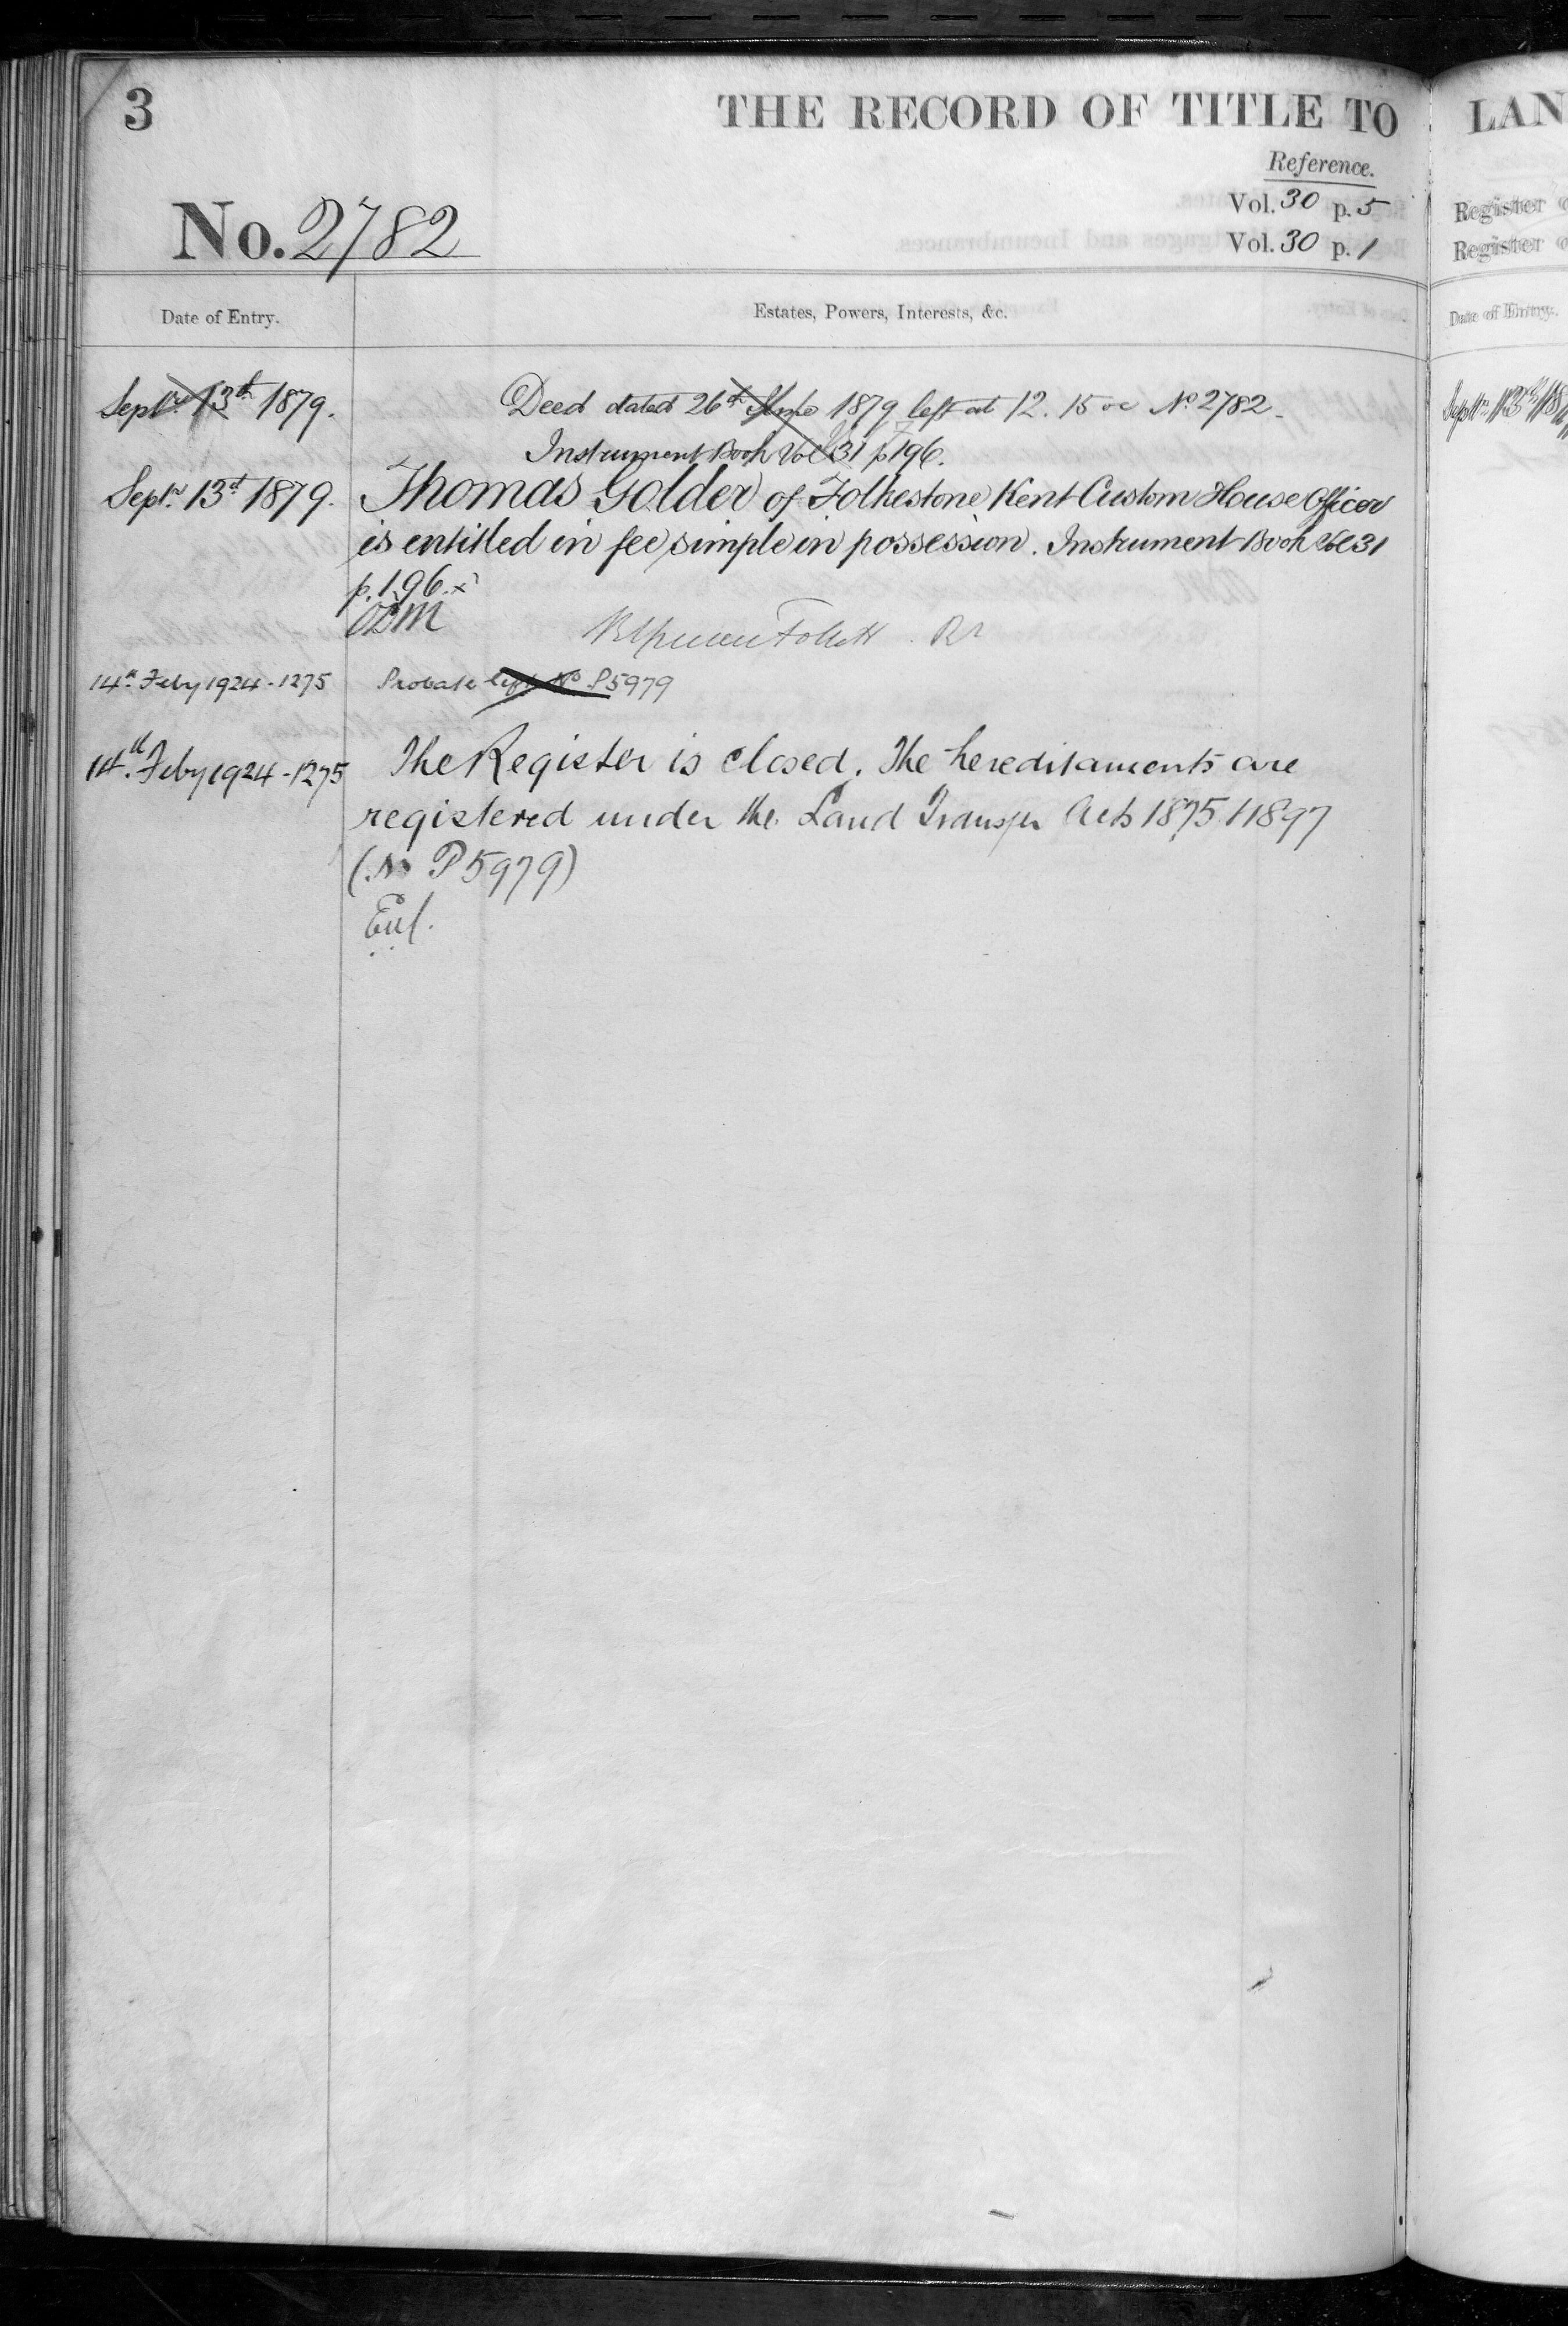 3
THE RECORD OF TITLE TO
LAN
Reference.
Vol. 30 p. 5
Vol. 30 p. 1
No. 2782
Register
Register
Date of Entry.
Estates, Powers, Interests, &c.
Date of Entry.
Septr. 13th 1879.
Deed dated 26th 1879 left at 12.15 oc No 2782.
Instrument Book Vol 31 p 196.
Septr. 13th 1879.
Thomas Golder of Folkestone Kent Custom House Officer
is entitled in fee simple in possession. Instrument Book Vol 31
p. 196. x
Follett
14th Feby 1924 - 1275
Probate left No P5979
14th Feby 1924 - 1275
The Register is closed. The hereditaments are
registered under the Land Transfer Acts 1875 & 1897
(No P5979)